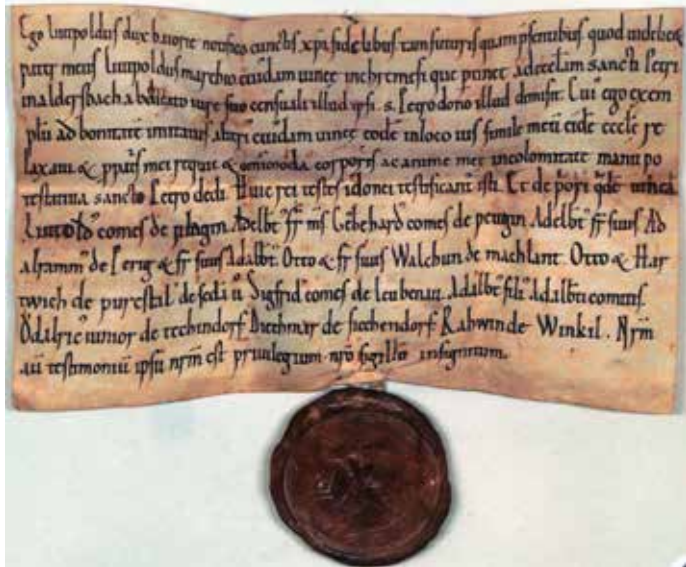 Ego liupoldus dux baiorie notifico cunctis xpi fidelibus tam futuris quam psentibus quod
pater meus liupoldus marchio cuidam uinee
in aldersbach iure suo censuali illud ipsi s. Petro dono illud dimisit. Cui ego exem
plū ad bonitatē imitatus uinee eodē in loco ius simile meū eidē eccłe re
laxaui & ppris mei requie & corporis ac anime mee incolomitate manu po
testatiua sancto Petro dedi. Huic rei testes idonei testificant isti. Et de pori qdē uinea
comes de Adelbt fr Gebehard comes de Adelbt fr suus Ad
alramm de Perig & fr suus Adalbt. Otto & fr suus Walchun de machlant. Otto & Har
twich de Sigfrid comes de leubenau. Adalbt fili Adalbti comitis.
Odalric iunior de Dietmar de Rahwin de Winkil. Nrm
aū testimoniū ipsū nrm est priuilegium nro sigillo insignitum.